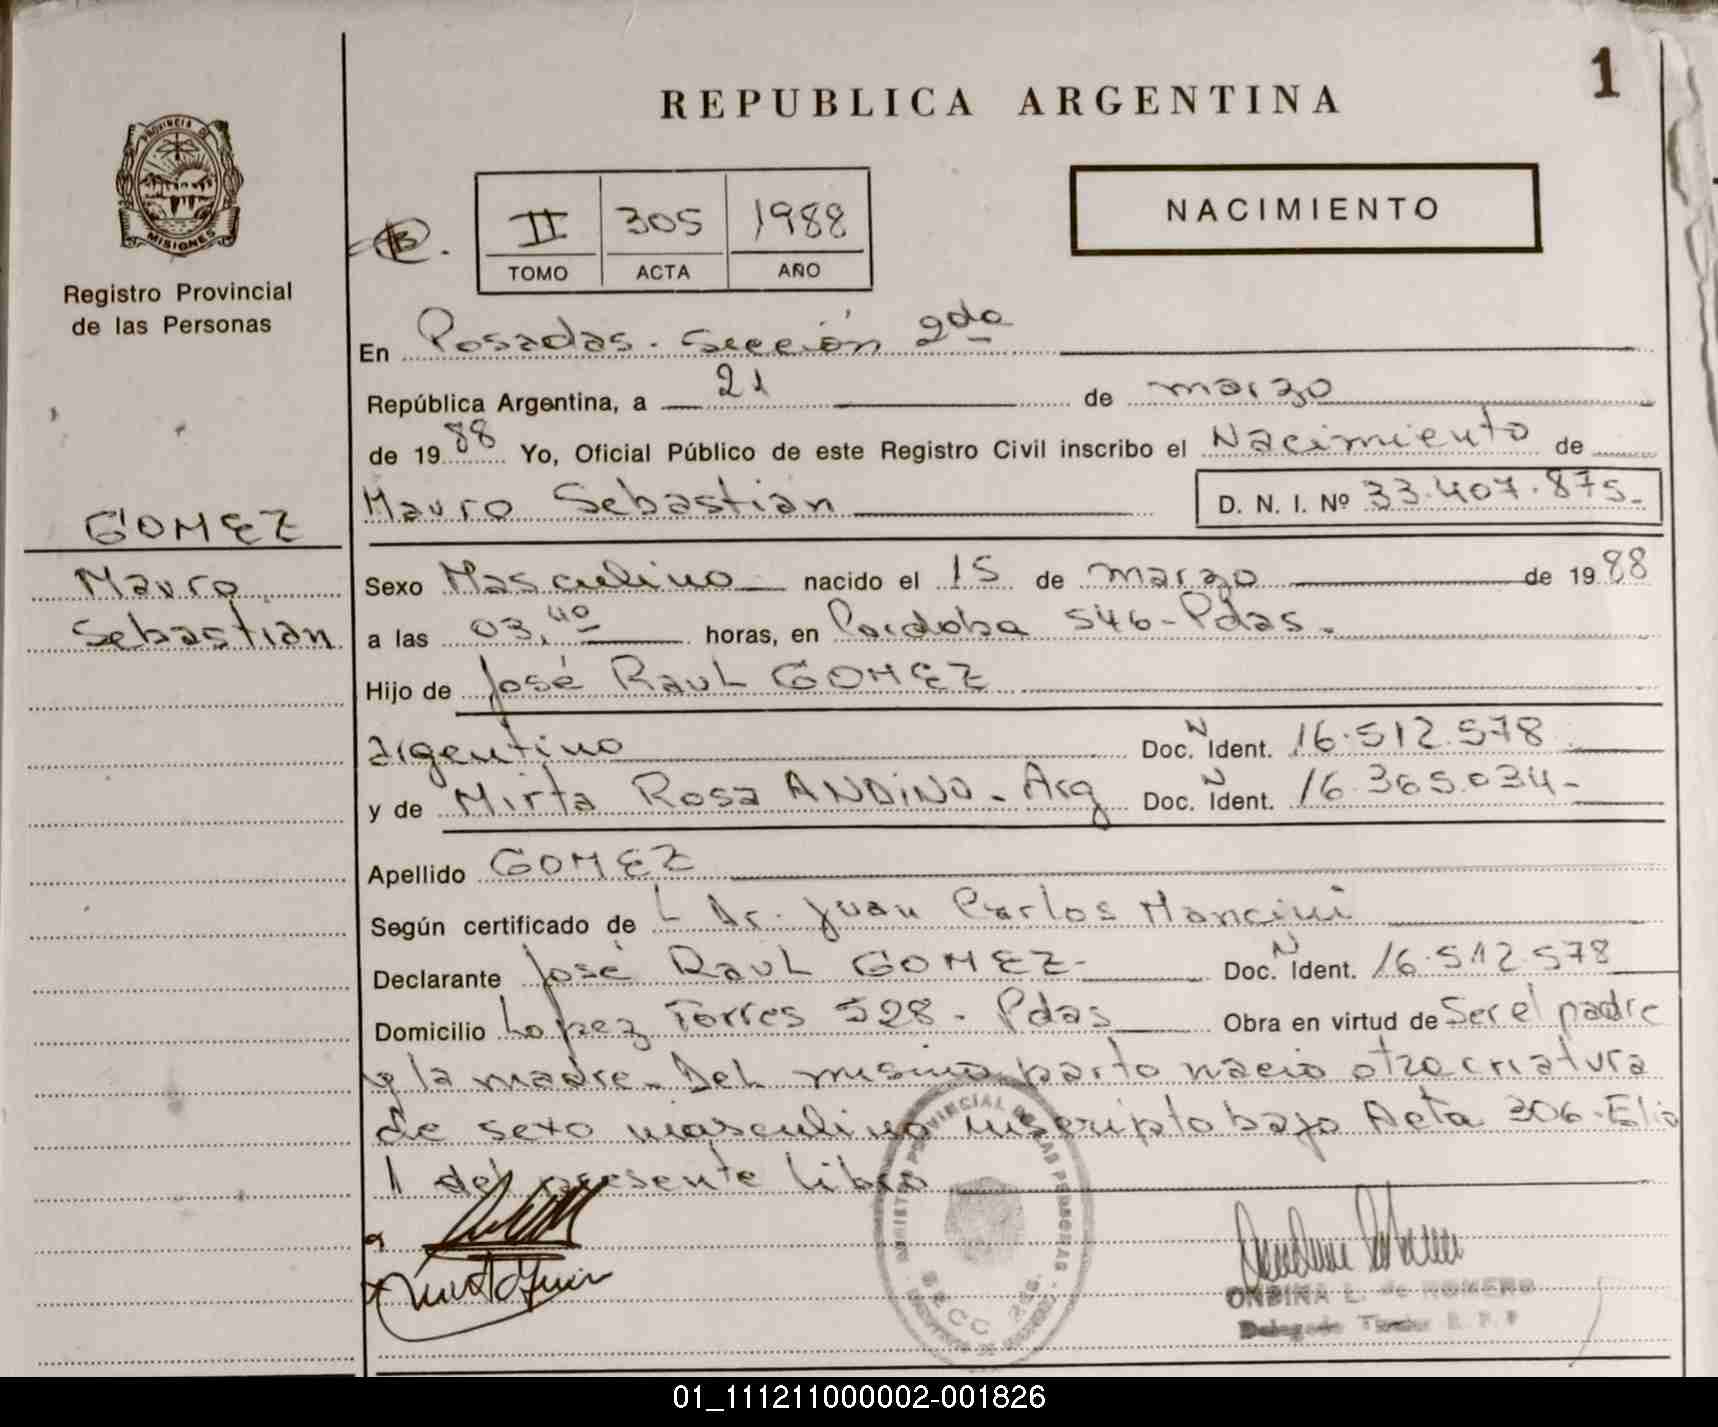 1
REPUBLICA ARGENTINA
PROVINCIA DE
MISIONES
Registro Provincial
de las Personas
B.
II 305 1988
TOMO ACTA AÑO
NACIMIENTO
En Posadas. Sección 2da
República Argentina, a 21 de marzo
de 1988 Yo, Oficial Público de este Registro Civil inscribo el Nacimiento de
Mauro Sebastian D. N. I. Nº 33.407.875.
GOMEZ
Mauro
Sebastian
Sexo Masculino nacido el 15 de marzo de 1988
a las 03,40 horas, en Cordoba 546-Pdas.
Hijo de José Raul GOMEZ
argentino Doc. N Ident. 16.512.578
y de Mirta Rosa ANDINO. Arg Doc. N Ident. 16.365.034-
Apellido GOMEZ
Según certificado de Dr. Juan Carlos Mancini
Declarante José Raul GOMEZ- Doc. N Ident. 16.512.578
Domicilio Lopez Torres 528. Pdas Obra en virtud de Ser el padre
y la madre. Del mismo parto nacio otra criatura
de sexo masculino inscripto bajo Acta 306.
1 del presente libro
REGISTRO PROVINCIAL DE LAS PERSONAS
SECC. 2da.
ONDINA L. de ROMERO
Delegado Titular R. P. P
01_111211000002-001826